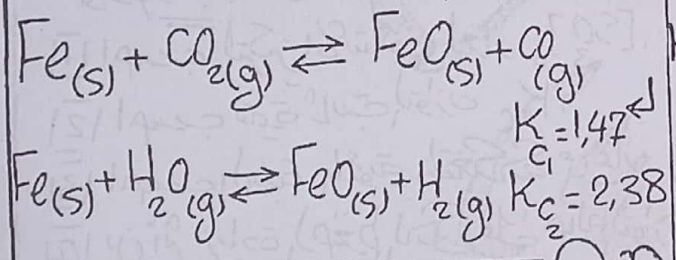 Fe(s) + CO2(g) ⇌ FeO(s) + CO(g)
Kc1 = 1,47
Fe(s) + H2O(g) ⇌ FeO(s) + H2(g) Kc2 = 2,38